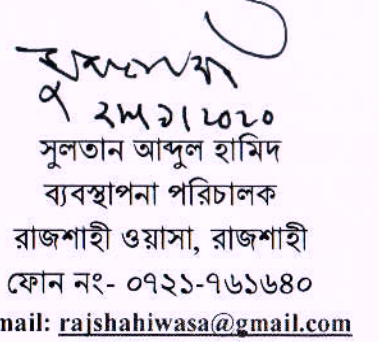 সুলতান আব্দুল হামিদ
ব্যবস্থাপনা পরিচালক
রাজশাহী ওয়াসা, রাজশাহী
ফোন নং- ০৭২১-৭৬১৬৪০
mail: rajshahiwasa@gmail.com